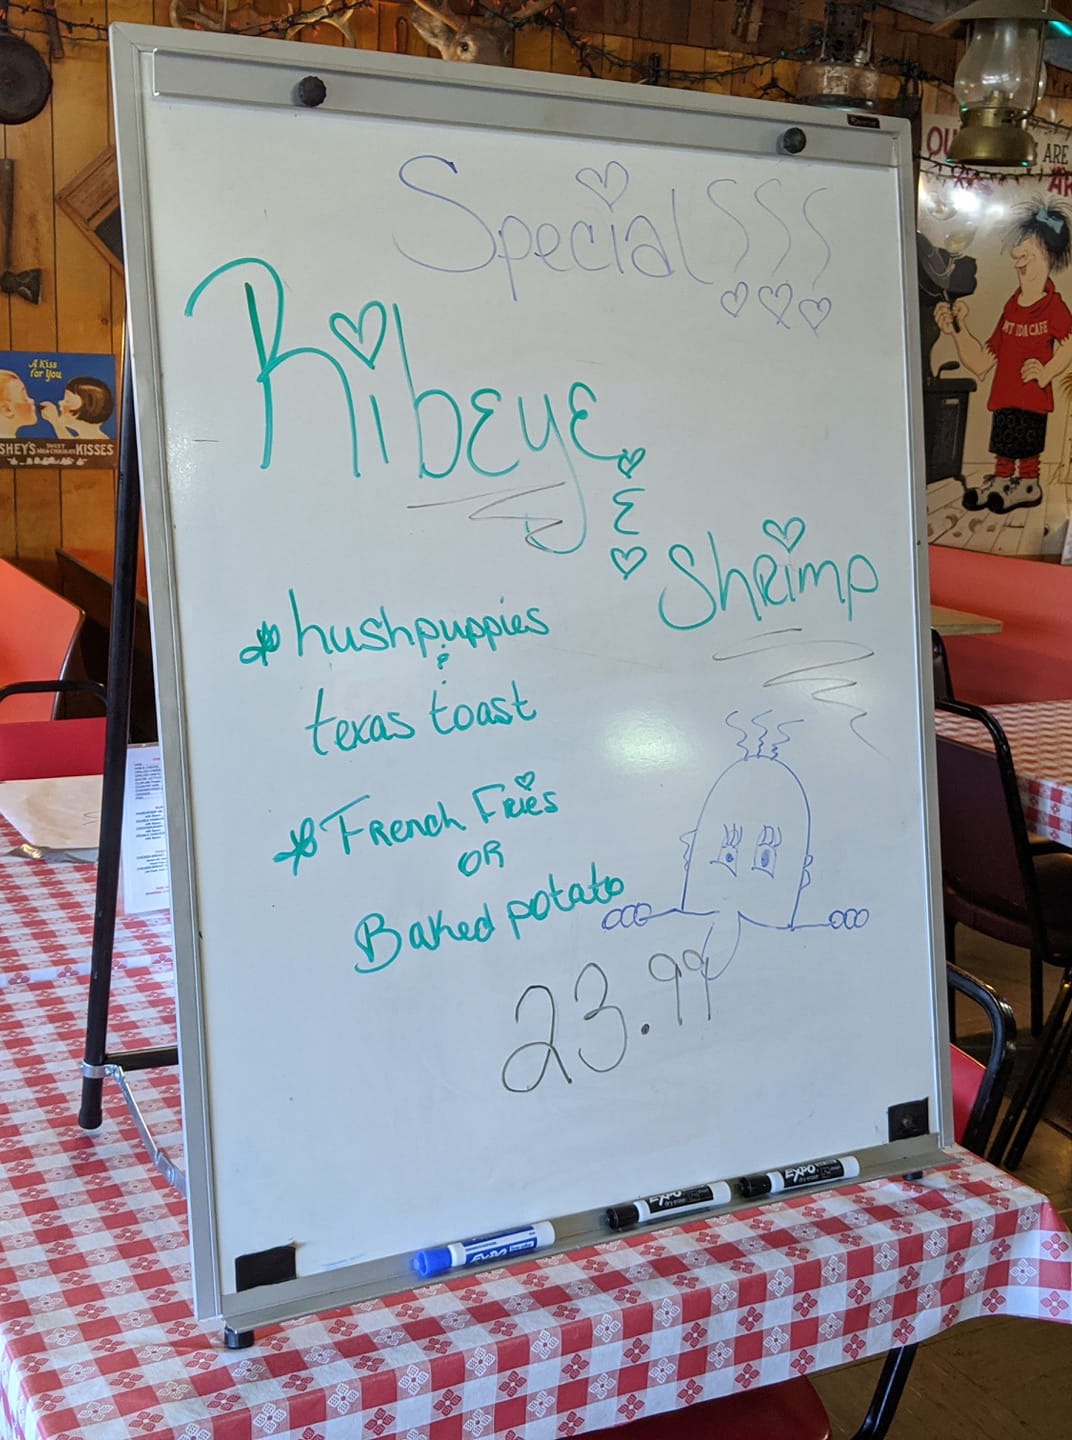 Specialsss
Ribeye
&
Shrimp
hushpuppies
&
texas toast
French Fries
OR
Baked potato
23.99
EXPO
EXPO
EXPO
A Kiss
for You
SHEY'S SWEET MILK CHOCOLATE KISSES
OU
ARE
MT IDA CAFE